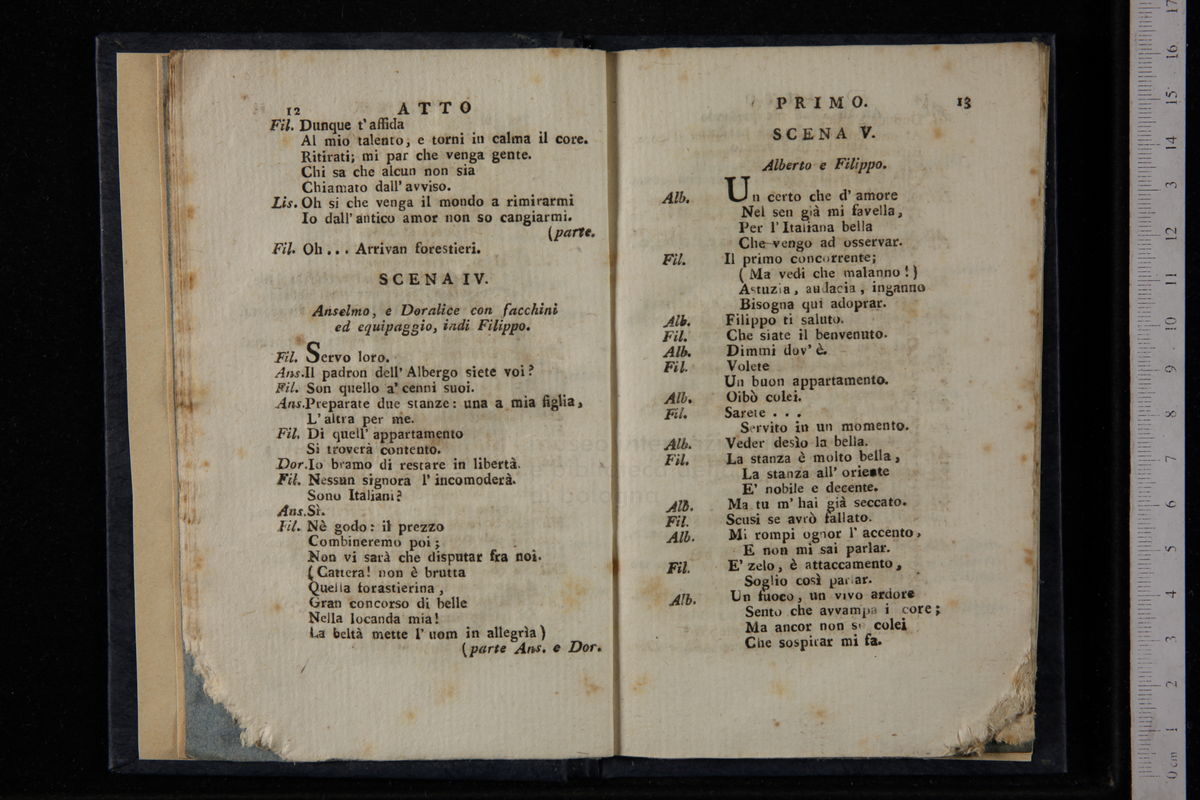 12 ATTO
Fil. Dunque t' affida
Al mio talento, e torni in calma il core.
Ritirati; mi par che venga gente.
Chi sa che alcun non sia
Chiamato dall' avviso.
Lis. Oh si che venga il mondo a rimirarmi
Io dall' antico amor non so cangiarmi.
(parte.
Fil. Oh... Arrivan forestieri.
SCENA IV.
Anselmo, e Doralice con facchini
ed equipaggio, indi Filippo.
Fil. Servo loro.
Ans. Il padron dell' Albergo siete voi?
Fil. Son quello a' cenni suoi.
Ans. Preparate due stanze: una a mia figlia,
L' altra per me.
Fil. Di quell' appartamento
Si troverà contento.
Dor. Io bramo di restare in libertà.
Fil. Nessun signora l' incomoderà.
Sono Italiani?
Ans. Sì.
Fil. Nè godo: il prezzo
Combineremo poi;
Non vi sarà che disputar fra noi.
(Cattera! non è brutta
Quella forastierina,
Gran concorso di belle
Nella locanda mia!
La beltà mette l' uom in allegrìa)
(parte Ans. e Dor.
PRIMO. 13
SCENA V.
Alberto e Filippo.
Alb. Un certo che d' amore
Nel sen già mi favella,
Per l' Italiana bella
Che vengo ad osservar.
Fil. Il primo concorrente;
(Ma vedi che malanno!)
Astuzia, audacia, inganno
Bisogna qui adoprar.
Alb. Filippo ti saluto.
Fil. Che siate il benvenuto.
Alb. Dimmi dov' è.
Fil. Volete
Un buon appartamento.
Alb. Oibò colei.
Fil. Sarete...
Servito in un momento.
Alb. Veder desìo la bella.
Fil. La stanza è molto bella,
La stanza all' oriente
E' nobile e decente.
Alb. Ma tu m' hai già seccato.
Fil. Scusi se avrò fallato.
Alb. Mi rompi ognor l' accento,
E non mi sai parlar.
Fil. E' zelo, è attaccamento,
Soglio così parlar.
Alb. Un fuoco, un vivo ardore
Sento che avvampa i core;
Ma ancor non so colei
Che sospirar mi fa.